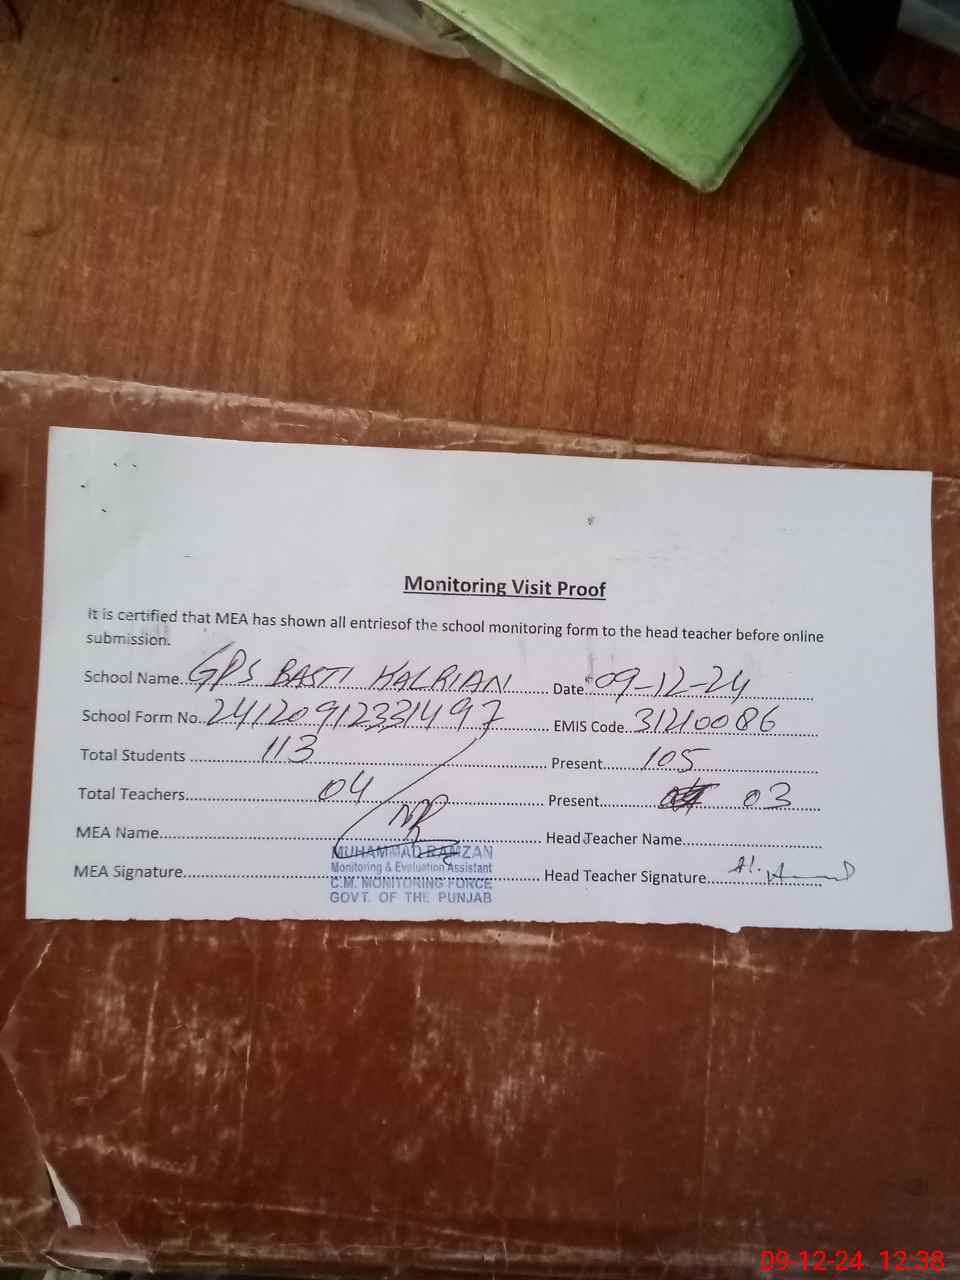 Monitoring Visit Proof
It is certified that MEA has shown all entriesof the school monitoring form to the head teacher before online
submission.
School Name..GPS BASTI HALRIAN.......... Date..09-12-24..........
School Form No..24120912331497.......... EMIS Code..31210086..........
Total Students..........113.......... Present..........105..........
Total Teachers..........04.......... Present.......... 03
MEA Name.......... Head Teacher Name..........
MUHAMMAD RAMZAN
Monitoring & Evaluation Assistant
MEA Signature.......... Head Teacher Signature..........
C.M. MONITORING FORCE
GOVT. OF THE PUNJAB
09-12-24 12:38